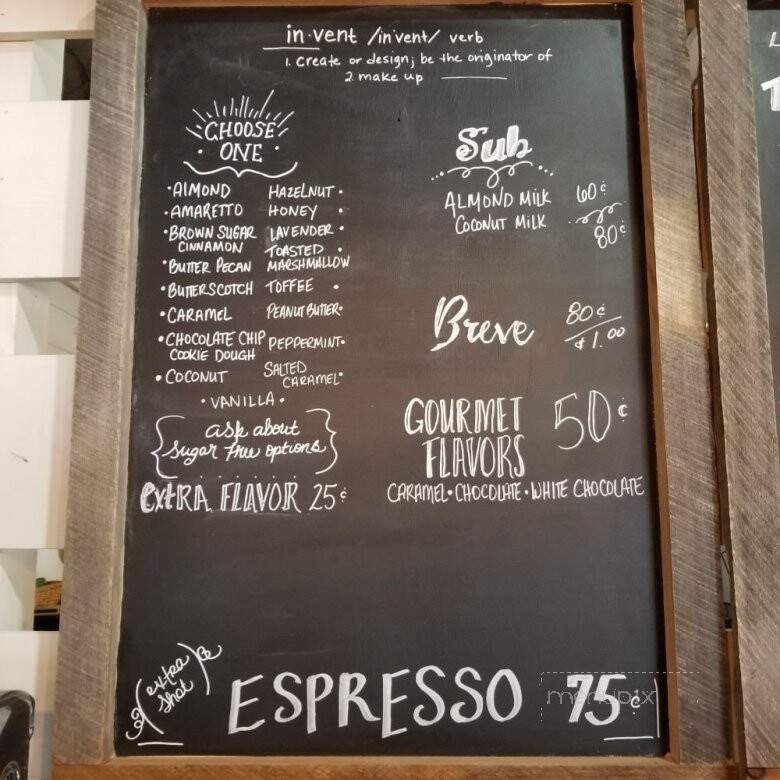 in·vent /in'vent/ verb
1. Create or design; be the originator of
2. make up
CHOOSE
· ONE ·
·AlMOND
·AMARETTO
·BROWN SUGAR
CINNAMON
·BUTTER PECAN
·BUTTERSCOTCH
·CARAMEL
·CHOCOLATE CHIP
COOKIE DOUGH
·COCONUT
HAZELNUT·
HONEY ·
LAVENDER·
TOASTED ·
MARSHMALLOW
TOFFEE ·
PEANUT BUTTER·
PEPPERMINT·
SALTED
CARAMEL·
·VANILLA·
ask about
sugar free options
EXTRA FLAVOR 25¢
Sub
ALMOND MILK 60¢
COCONUT MILK
80¢
Breve 80¢
$1.00
GOURMET
FLAVORS 50¢
CARAMEL·CHOCOLATE·WHITE CHOCOLATE
(extra
shot)
ESPRESSO 75¢
menupix
L
T